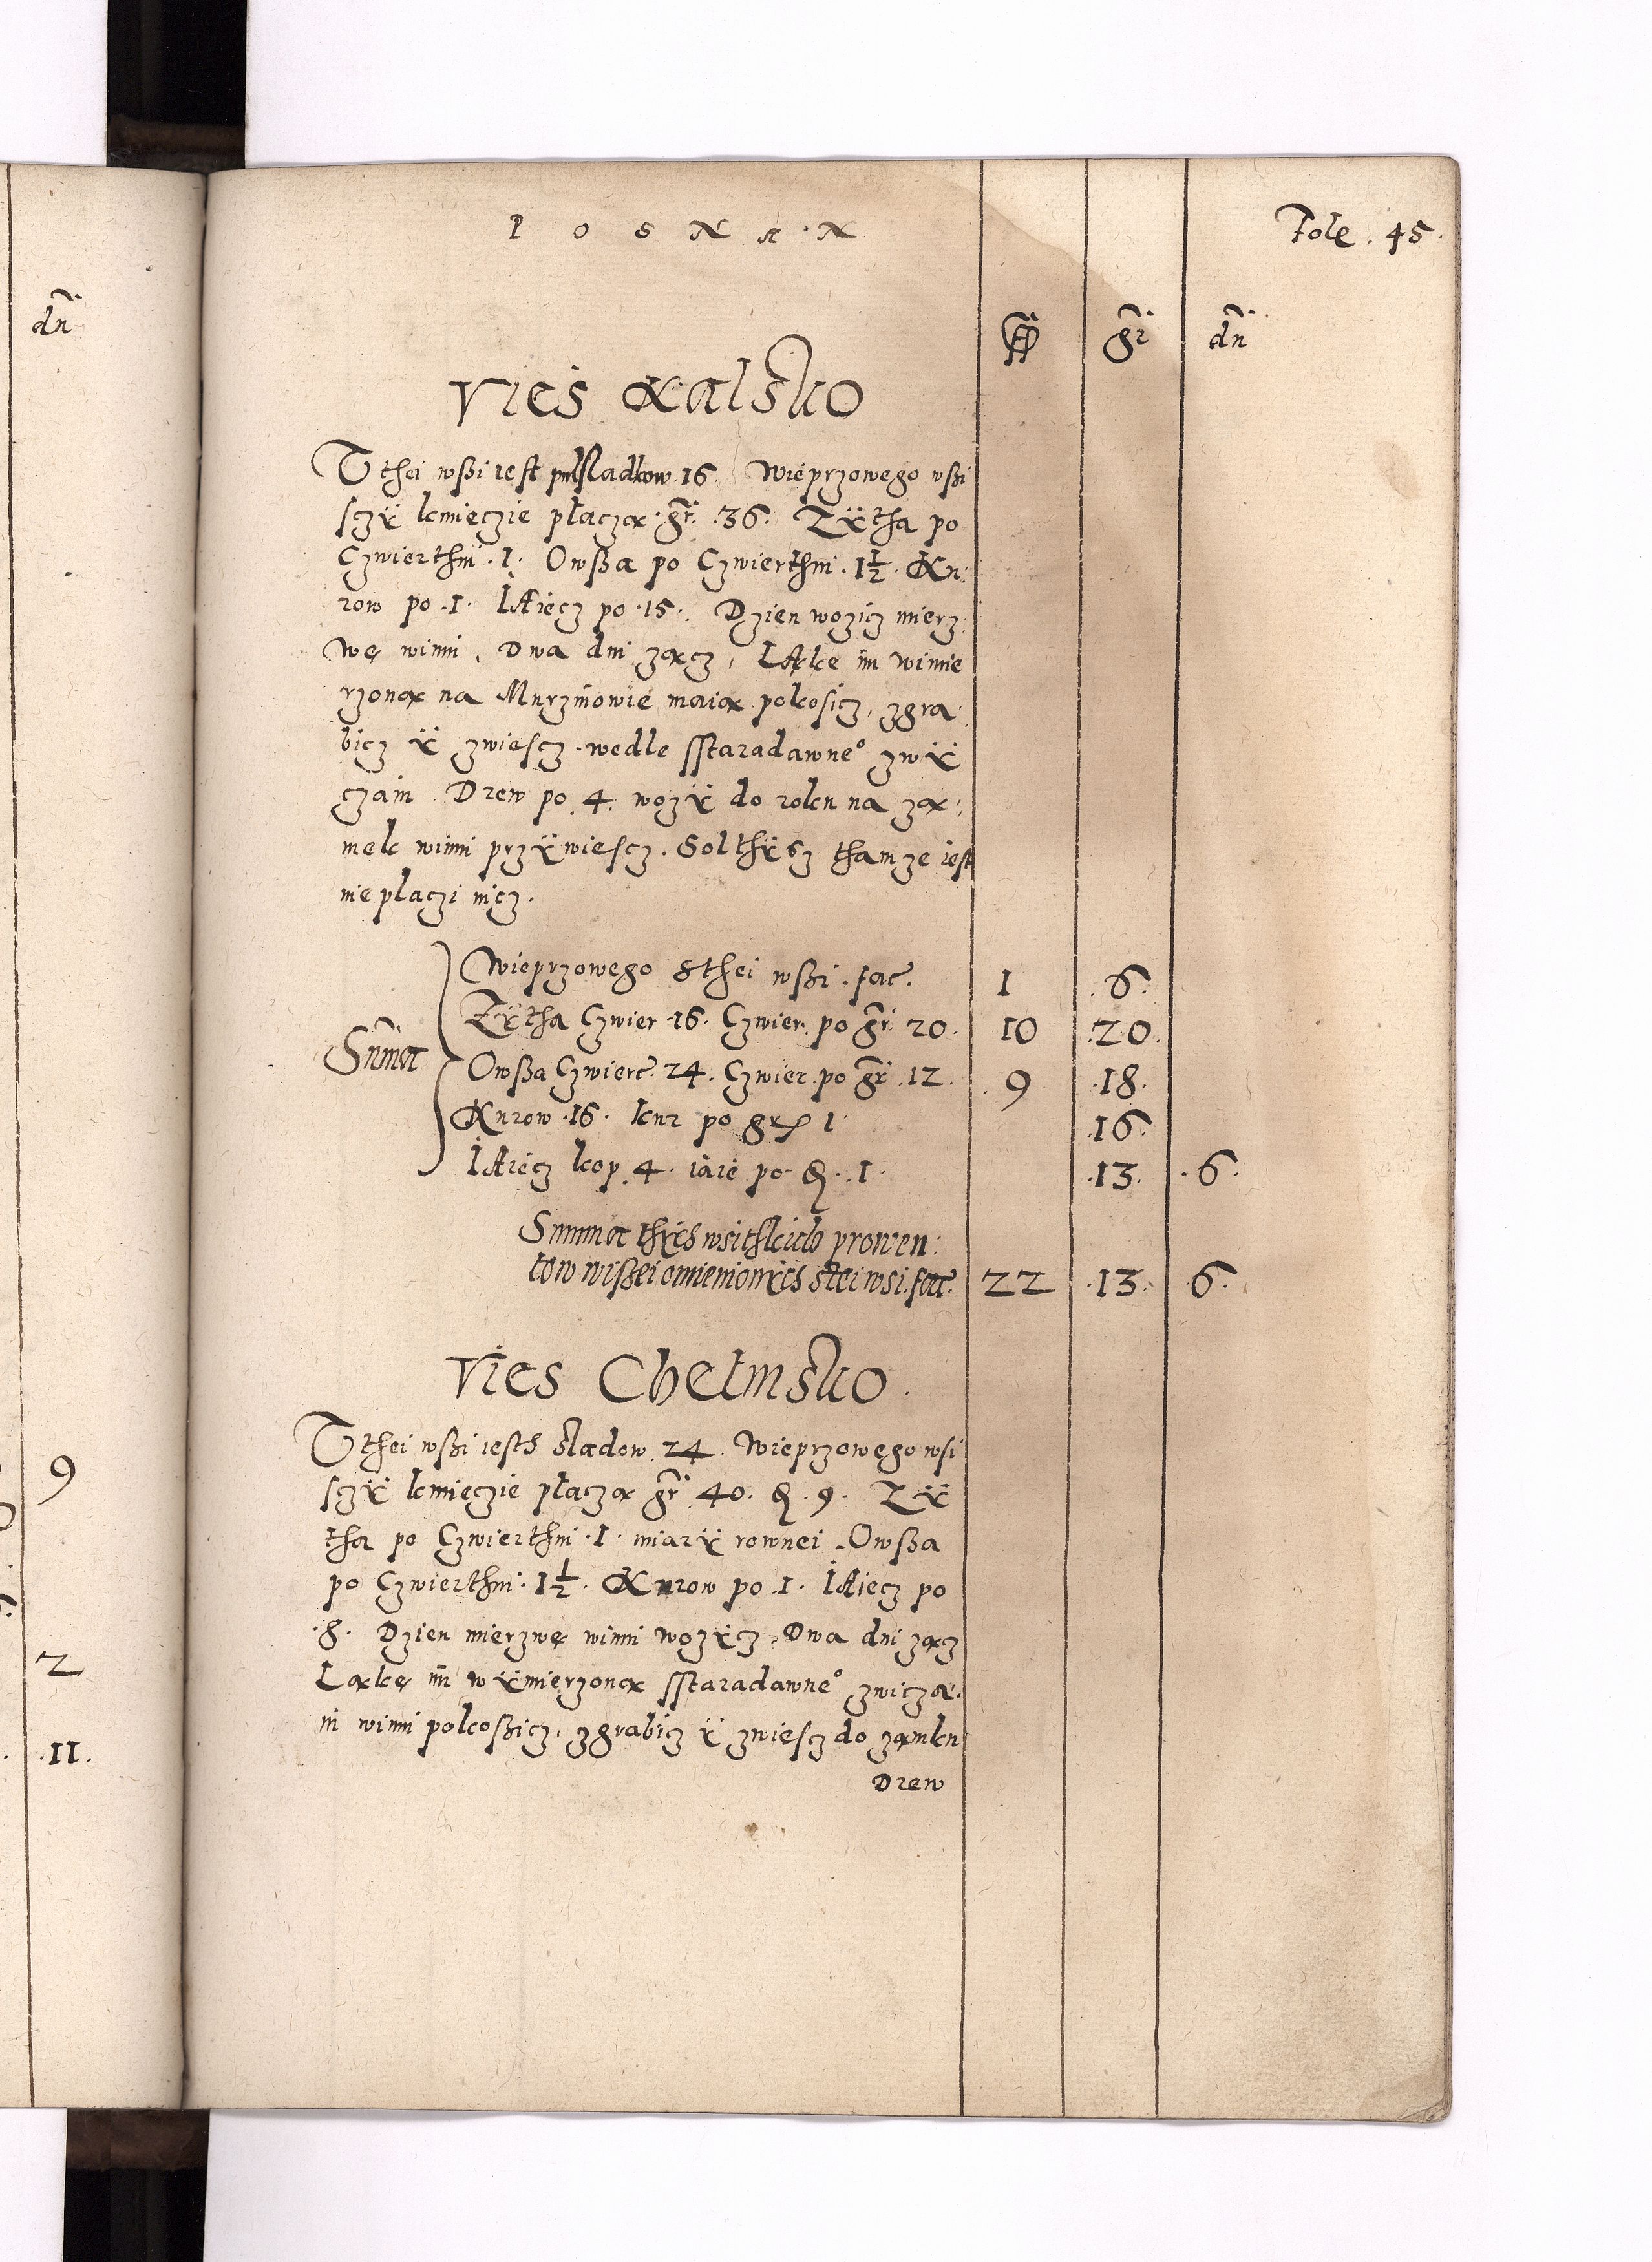 POSNAN
Fole . 45.
fl gr dn
Vieś Kalsko
W thei wßi iest pulsladkow 16. Wieprzowego wßi
sczÿ kmieczie płaczą . gr. 36. Zÿtha po
Czwierthni . 1. Owßa po Czwierthni . 1½. Ku:
row po .1. IAiecz po .15. Dzien wozicz mierz
wę winni, Dwa dni żącz, Łąke im wimie
rzoną na Murzinowie maią pokosicz, zgra:
bicz ÿ zwiescz . wedle sstaradawne° zwÿ
czaiu . Drew po 4. wozÿ do roku na zą:
mek winni przÿwiescz. Solthÿsz thamze iest
nie placzi nicz.
Wieprzowego sthei wßi . fac. 1 .6.
Zÿtha Czwier 16. Czwier. po gr. 20. 10 .20.
Suma
Owßa Czwiert. 24. Czwier. po gr .12. .9 .18.
Kurow .16. kur po gr 1 .16.
IAiecz kop. 4. iaie po δ. .1. .13. .6.
Summa thÿch wsithkich prowen:
tow wißei omienionÿch stei wsi . fac. 22 .13. .6.
Vies Chełmsko .
W thei wßi iesth sladow 24. Wieprzowego wsi
sczÿ kmieczie płaczą gr. 40. δ. 9. Zÿ
tha po Czwierthni .1. miarÿ rownei . Owßa
po Czwierthni . 1½. Kurow po .1. IAiecz po
.8. Dzien mierzwę winni wozÿcz, Dwa dni żącz
Łąkę im wÿmierzoną sstaradawne° zwicza:
iu winni pokoßicz, zgrabicz ÿ zwiescz do zamku
Drew
dn
9
2
.11.